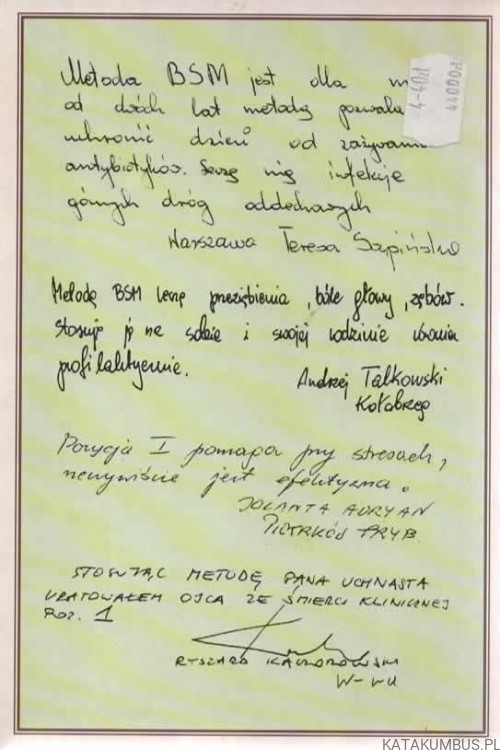 Metoda BSM jest dla m
od dwóch lat metodą pozwala
uchronić dzieci od zażywania
antybiotyków. Leczę nią infekcje
górnych dróg oddechowych
Warszawa Teresa
Metodą BSM leczę przeziębienia, bóle głowy, zębów.
Stosuję ją na sobie i swojej rodzinie również
profilaktycznie.
Andrzej Talkowski
Kołobrzeg
Pozycja I pomaga przy stresach,
rzeczywiście jest efektywna.
JOLANTA ADRYAN
PIOTRKÓW TRYB.
STOSUJĄC METODĘ PANA UCHNASTA
URATOWAŁEM OJCA ZE ŚMIERCI KLINICZNEJ
POZ. 1
RYSZARD
W-WA
4-40zł
44000zł
KATAKUMBUS.PL